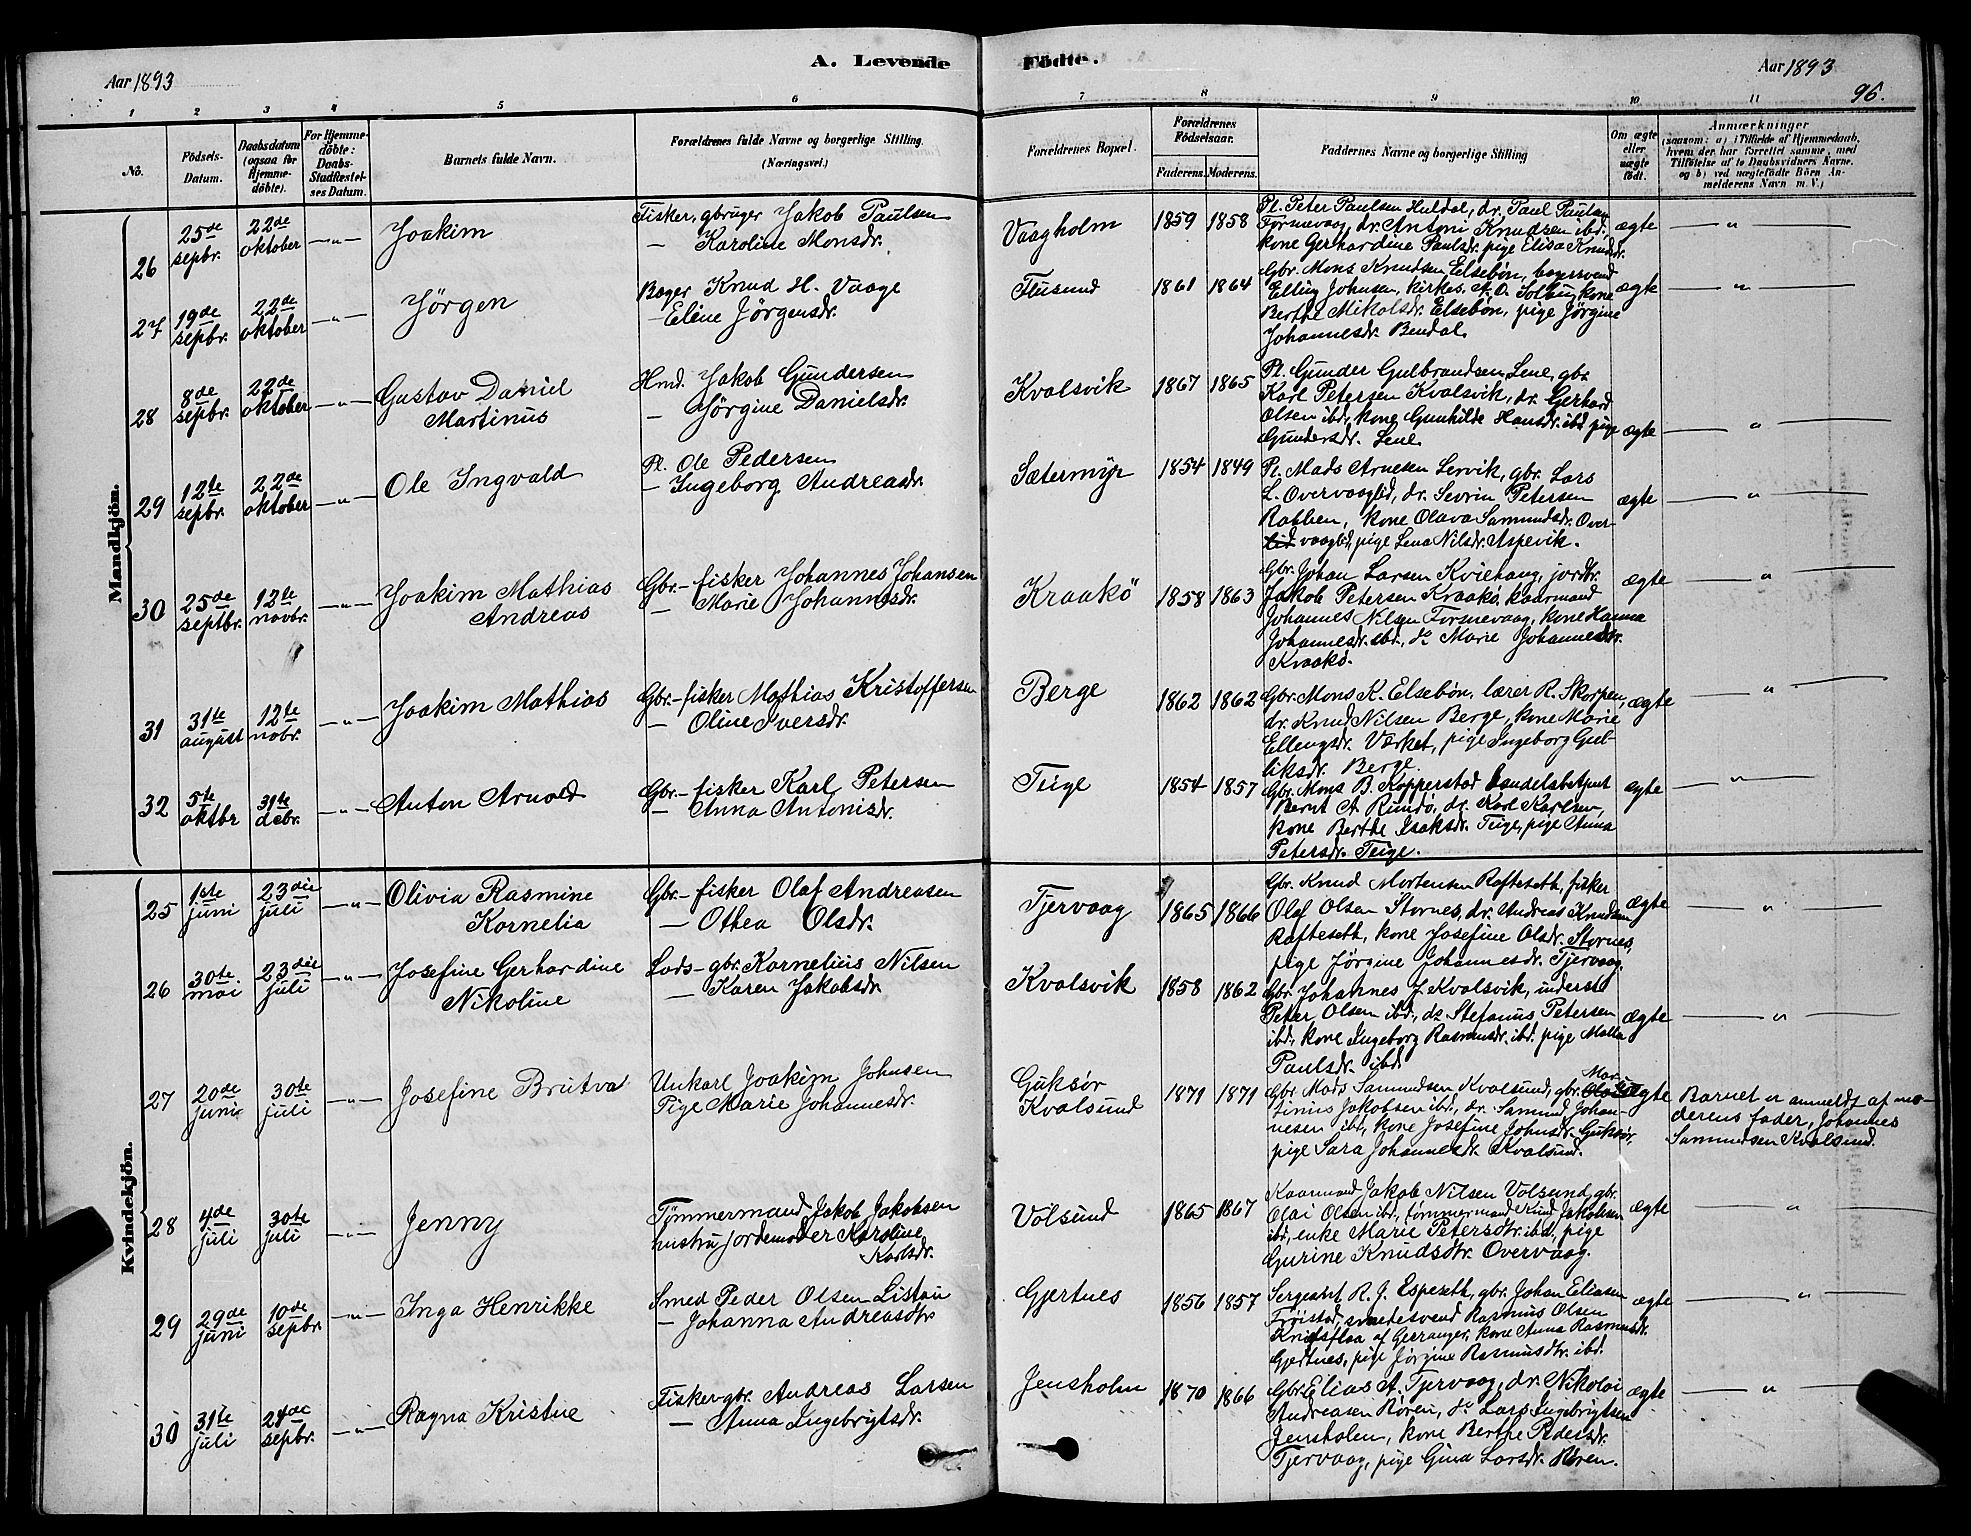 Aar 1893
A. Levende
Fødte.
Aar 1893
96.
1 2 3 4 5 6 7 8 9 10 11
No.
Fødsels-
Datum.
Daabsdatum
(ogsaa for
Hjemme-
døbte).
For Hjemme-
døbte:
Daabs-
Stadfæstel-
ses Datum.
Barnets fulde Navn.
Forældrenes fulde Navne og borgerlige Stilling.
(Næringsvei.)
Forældrenes Bopæl.
Forældrenes
Fødselsaar.
Faderens. Moderens.
Faddernes Navne og borgerlige Stilling
Om ægte
eller
uægte
født.
Anmærkninger
(saasom: a) i Tilfælde af Hjemmedaab,
hvem der har forrettet samme, med
Tilføielse af to Daabsvidners Navne.
og b) ved uægtefødte Børn An-
melderens Navn m. V.)
Mandkjön.
26
25de
sepbr.
22de
oktober
—"—
Joakim
Fisker, gbruger Jakob Paulsen
— Karoline Monsdr.
Vaagholm
1859 1858
Pl. Peter Paulsen Huldal, dr. Paul Paulsen
dr. Antoni Knudsen ibd.
kone Gerhardine Paulsdr. pige Elisa Knudsdr.
ægte
— " —
27
19de
sepbr.
22de
oktober
—"—
Jörgen
Knud H. Vaage
— Elene Jörgensdr.
Flusund
1861 1864
Gbr. Mons Knudsen Elsebön,
Elling Johnsen, kirkes. A. O. kone
Berthe Mikolsdr. Elsebön, pige Jörgine
Johannesdr. Bendal.
ægte
— " —
28
8de
sepbr.
22de
oktober
—"—
Gustav Daniel
Martinus
Hmd. Jakob Gundersen
— Jörgine Danielsdr.
Kvalsvik
1867 1865
Pl. Gunder Gulbrandsen Lene, gbr.
Karl Petersen Kvalsvik, dr. Gerhard
Olsen ibd, kone Gunhilde Hansdr. ibd. pige
Gundersdr. Lene.
ægte
— " —
29
12te
sepbr.
22de
oktober
—"—
Ole Ingvald
Pl. Ole Pedersen
— Ingeborg Andreasdr.
Sætermyr
1854 1849
Pl. Mads Arnesen Lervik, gbr. Lars
L. Overvaaglid, dr. Sevrin Petersen
Rabben, kone Olava Samundsdr. Over-
lid vaaglid, pige Lena Nilsdr. Aspevik.
ægte
— " —
30
25de
septbr.
12te
novbr.
—"—
Joakim Mathias
Andreas
Gbr.- fisker Johannes Johansen
— Marie Johannesdr.
Kraakö
1858 1863
Gbr. Johan Larsen Kviehaug, jordbr.
Jakob Petersen Kraakö, kaarmand
Johannes Nilsen kone Hanna
Johannesdr. ibd., do Marie Johannesdr.
Kraakö.
ægte
— " —
31
31te
august
12te
nobr.
—"—
Joakim Mathias
Gbr.- fisker Mathias Kristoffersen
— Oline Iversdr.
Berge
1862 1862
Gbr. Mons K. Elsebön, lærer R. Skorpen,
dr. Knud Nilsen Berge, kone Marie
Ellengsdr. Værket, pige Ingeborg Gul-
liksdr. Berge.
ægte
— " —
32
5te
oktbr
31te
debr.
—"—
Anton Arnold
Gbr.- fisker Karl Petersen
— Anna Antonisdr.
Teige
1854 1857
Gbr. Mons B. Kopperstad handelsbetjent
Bernt A. Rundö, dr. Karl Karlsen,
kone Berthe Isaksdr. Teige, pige Anna
Petersdr. Teige.
ægte
— " —
Kvindekjön.
25
1ste
juni
23die
juli
—"—
Olivia Rasmine
Kornelia
Gbr- fisker Olaf Andreasen
— Othea Olsdr.
Tjervaag
1865 1866
Gbr. Knud Mortensen Rafteseth, fisker
Olaf Olsen Stornes, dr. Andreas Knudsen
Rafteseth, kone Josefine Olsdr. Stornes,
pige Jörgine Johannesdr. Tjervaag.
ægte
— " —
26
30te
mai
23die
juli
—"—
Josefine Gerhardine
Nikoline
Lods- gbr. Kornelius Nilsen
— Karen Jakobsdr.
Kvalsvik
1858 1862
Gbr. Johannes J. Kvalsvik, inderst
Peter Olsen ibd., do Stefanus Petersen
ibd., kone Ingeborg Rasmusdr. ibd. pige Malla
Paulsdr. ibd.
ægte
— " —
27
20de
juni
30te
juli
—"—
Josefine Brutva
Unkarl Joakim Johnsen
Pige Marie Johannesdr.
Guksör
Kvalsund
1871 1871
Gbr. Mads Samundsen Kvalsund, gbr. Mar-
tinus Jakobsen ibd, dr. Samund Johan-
nesen ibd, kone Josefine Johnsdr. Guksör,
pige Sara Johannesdr. Kvalsund.
uægte
Barnet er anmeldt af mo-
derens fader, Johannes
Samundsen Kvalsund.
28
4de
juli
30te
juli
—"—
Jenny
Tömmermand Jakob Jakobsen
hustru jordemoder Karoline
Karlsdr.
Volsund
1865 1867
Kaarmand Jakob Nilsen Volsund, gbr.
Olai Olsen ibd, tömmermand Knud Jakobsen
ibd., enke Marie Petersdtr. ibd., pige
Gurine Knudsdtr. Overvaag.
ægte
— " —
29
29de
juni
10de
sepbr.
—"—
Inga Henrikke
Smed Peder Olsen Listau
— Johanna Andreasdtr.
Gjertnes
1856 1857
Sergeant R. J. Espeseth, gbr. Johan Eliasen
Fröistad, smedesvend Rasmus Olsen
Knifsflaa af Gerranger, kone Anna Rasmusdr.
Gjertnes, pige Jörgine Rasmusdtr. ibd.
ægte
— " —
30
31te
juli
24de
sepbr.
—"—
Ragna Kristne
Fisker-gbr. Andreas Larsen
— Anna Ingebrigtsdr.
Jensholm
1870 1866
Gbr. Elias A. Tjervaag, dr. Nikolai
Andreasen Rören, do Lars Ingebrigtsen
Jensholen, kone Berthe Pedersdr.
Tjervaag, pige Gina Larsdr. Rören.
ægte
— " —